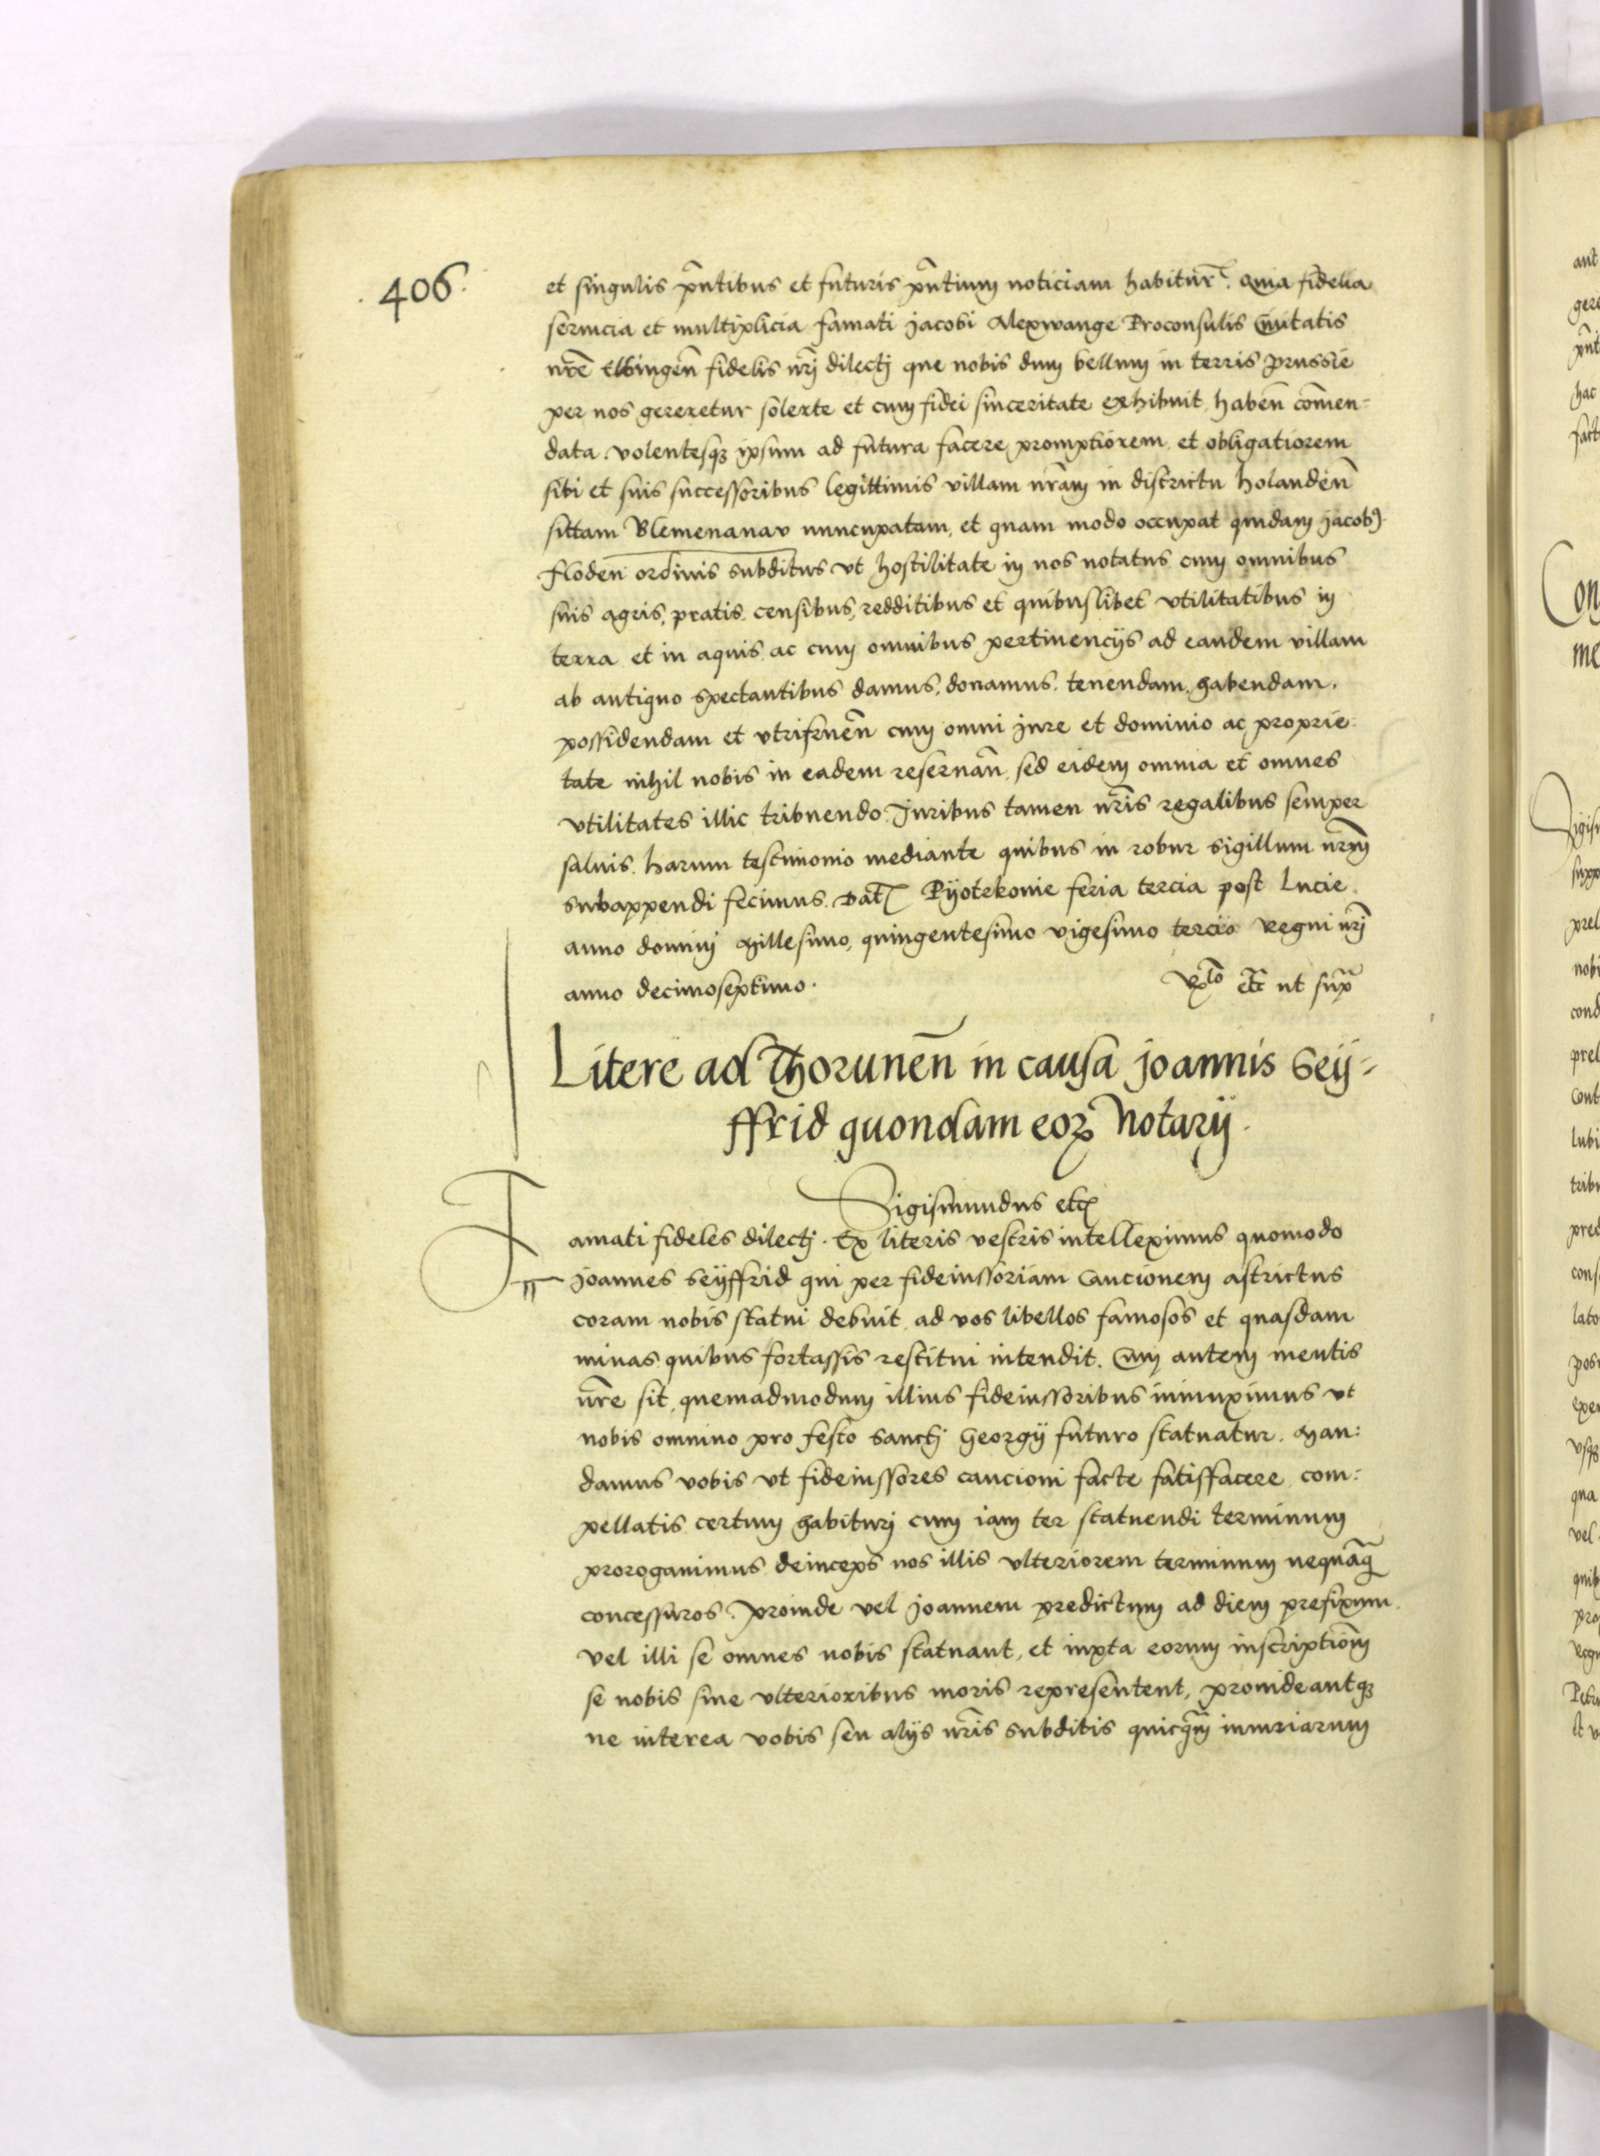 406.
et singulis p̃ntibus et futuris p̃ntium noticiam habitur̃. Quia fidelia
seruicia et multiplicia famati Jacobi Alexwange Proconsulis Ciuitatis
nr̃e Elbingeñ fidelis nr̃j dilectj que nobis dum bellum in terris Prussie
per nos gereretur solerte et cum fidei sinceritate exhibuit, habeñ com̃en=
data. volentesqȝ ipsum ad futura facere promptiorem et obligatiorem
sibi et suis successoribus legittimis villam nr̃am in districtu Holandeñ
sittam Blemenanav nuncupatam, et quam modo occupat quidam Jacobꝰ
Floden ordinis subditus vt hostilitate in nos notatus cum omnibus
suis agris, pratis, censibus, redditibus et quibuslibet vtilitatibus in
terra et in aquis, ac cum omnibus pertinencijs ad eandem villam
ab antiquo spectantibus damus, donamus, tenendam, habendam,
possidendam et vtrifrueñ cum omni jure et dominio ac proprie:
tate nihil nobis in eadem reseruañ, sed eidem omnia et omnes
vtilitates illic tribuendo. Juribus tamen nr̃is regalibus semper
saluis. harum testimonio mediante quibus in robur sigillum nr̃m
subappendi fecimus. Dat̃ Pyotrkouie feria tercia post Lucie.
anno dominj Millesimo, quingentesimo vigesimo tercio Regni nr̃j
anno decimoseptimo. Rel̃o etc̃ ut sup̃
Litere ad Thoruneñ in causa Joannis Seÿ=
ffrid quondam eoꝝ Notarij.
Sigismundus etc̃
Famati fideles dilectj. Ex literis vestris intelleximus quomodo
Joannes Seÿffrid qui per fideiussoriam Caucionem astrictus
coram nobis statui debuit, ad vos libellos famosos et quasdam
minas quibus fortassis restitui intendit. Cum autem mentis
nr̃e sit, quemadmodum illius fideiussoribus iniunximus vt
nobis omnino pro festo Sanctj Georgij futuro statuatur. Man:
damus vobis vt fideiussores caucioni facte satisfacere com:
pellatis certum habiturj cum iam ter statuendi terminum
prorogauimus deinceps nos illis vlteriorem terminum nequaq̃
concessuros. Proinde vel Joannem predictum ad diem prefixum.
vel illi se omnes nobis statuant, et iuxta eorum inscriptiom̃
se nobis sine vlterioribus moris representent, prouideantqȝ
ne interea vobis seu alijs nr̃is subditis quicq̃m iniuriarum